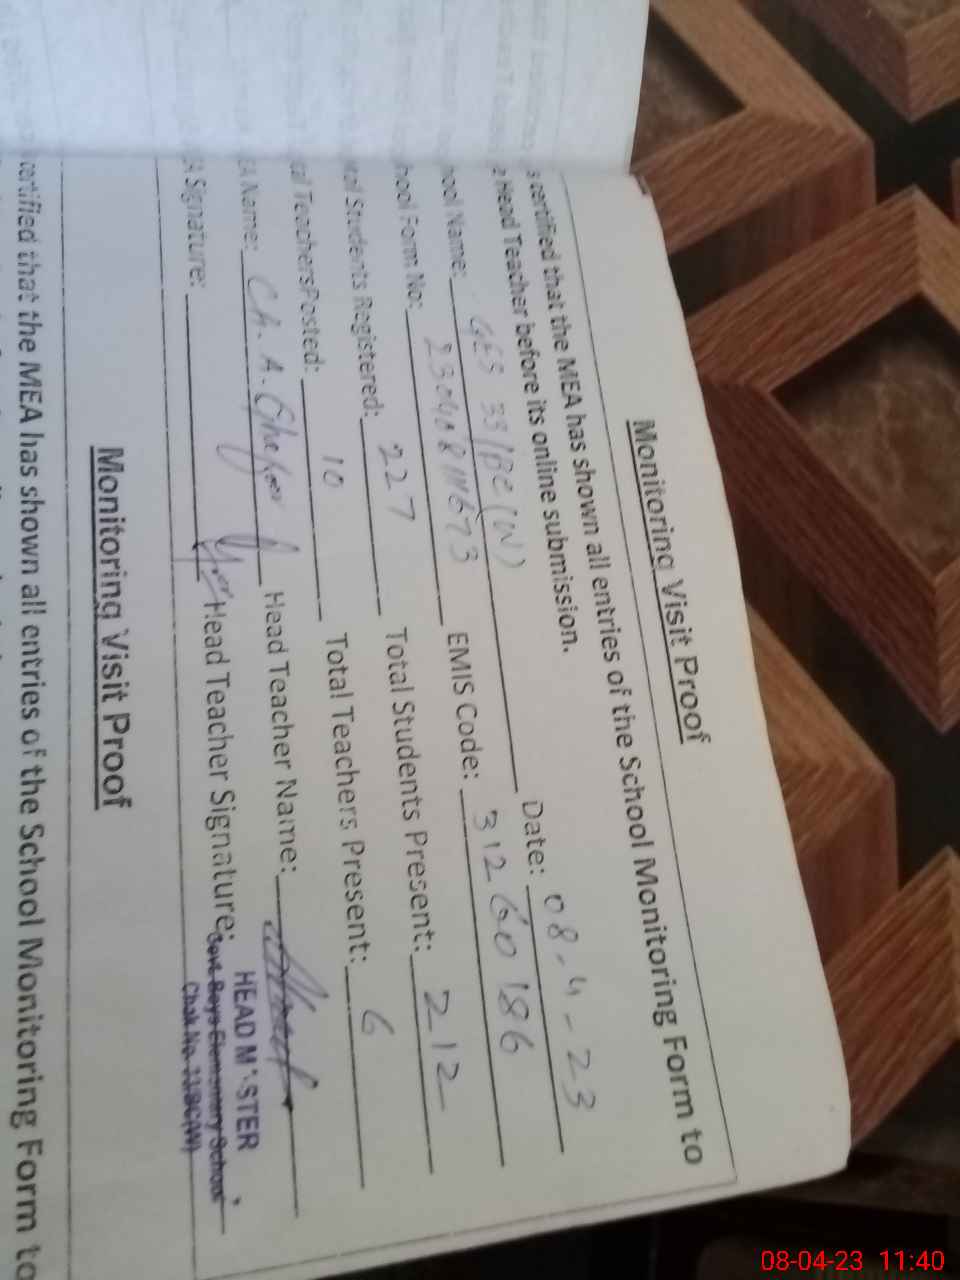 Monitoring Visit Proof
s certified that the MEA has shown all entries of the School Monitoring Form to
e Head Teacher before its online submission.
ool Name: GES 33/BC(W) Date: 08-4-23
hool Form No: EMIS Code: 31260186
tal Students Registered: 227 Total Students Present: 212
tal TeachersPosted: 10 Total Teachers Present: 6
EA Name: Ch. A. Ghafoor Head Teacher Name:
EA Signature: Head Teacher Signature:
HEAD MASTER
Govt. Boys Elementary School
Chak No. 33/BC(W)
Monitoring Visit Proof
certified that the MEA has shown all entries of the School Monitoring Form to
08-04-23 11:40